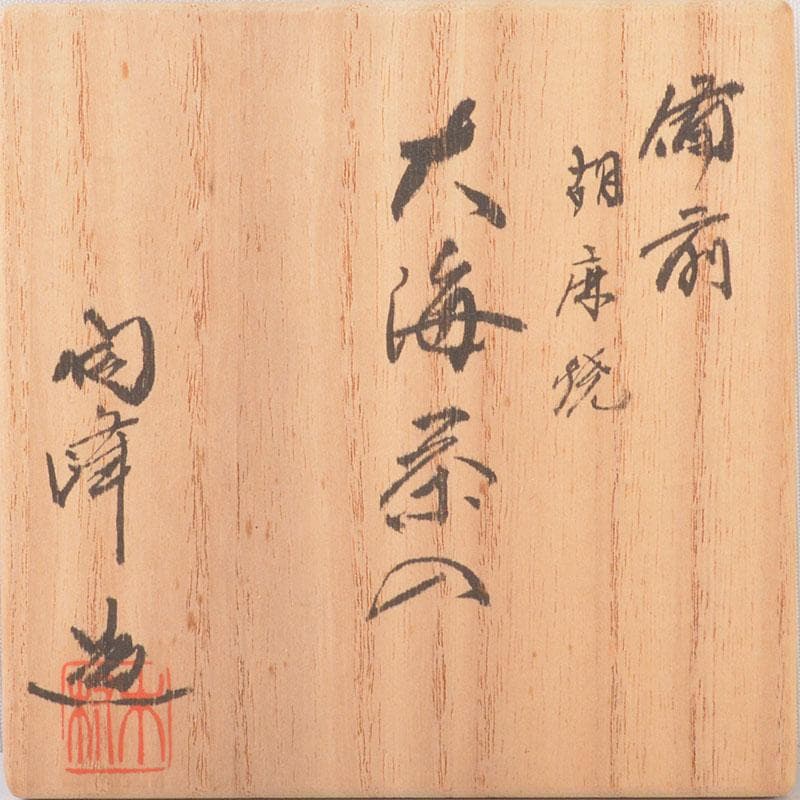 備前
胡麻焼
大海茶入
陶峰造